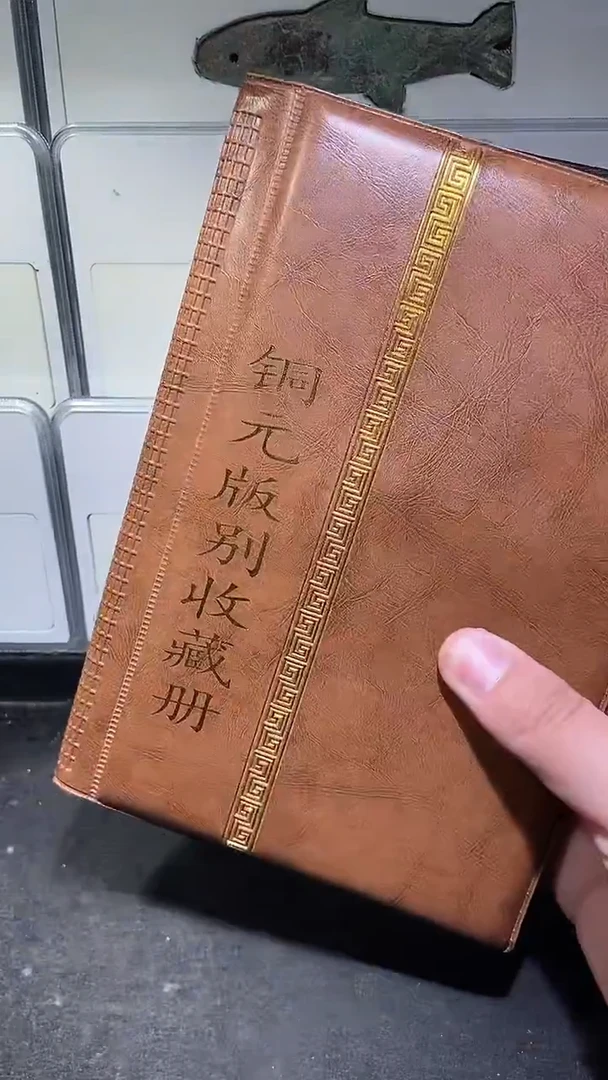 铜元版别收藏册